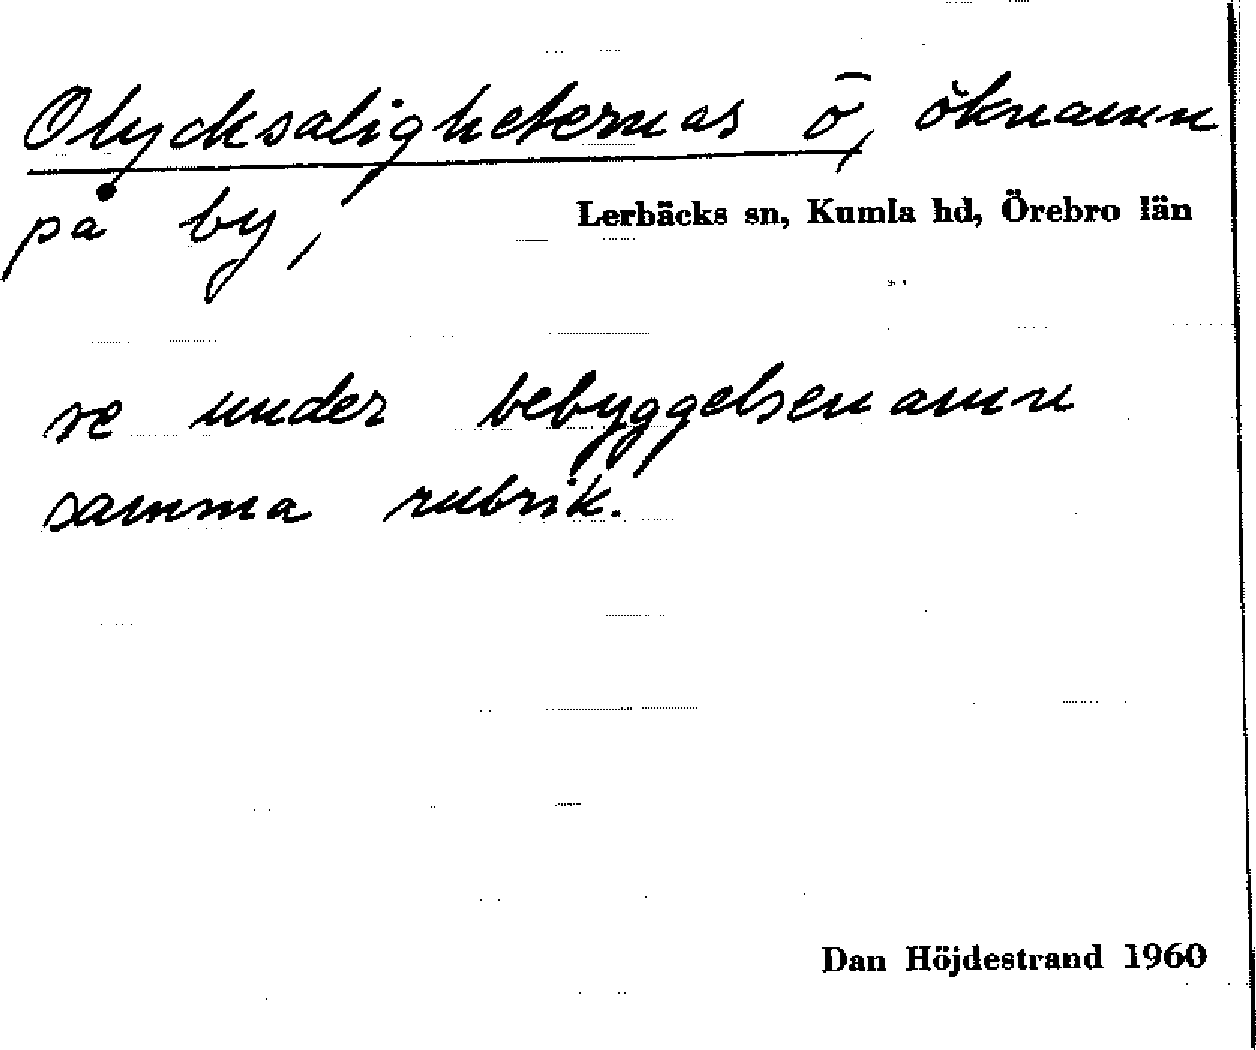 Olycksaligheternas ö, öknamn
på by,
Lerbäcks sn, Kumla hd, Örebro län
se under bebyggelsenamn
samma rubrik.
Dan Höjdestrand 1960